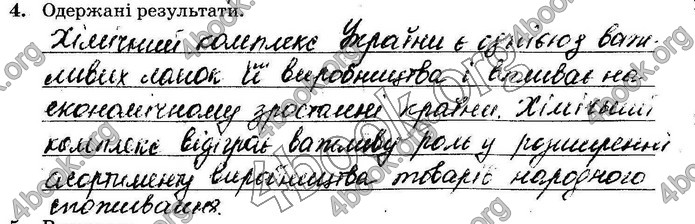 4. Одержані результати.
Хімічний комплекс України є однією з важ-
ливих ланок її виробництва і впливає на
економічному зростанні країни. Хімічний
комплекс відіграє важливу роль у розширенні
асортименту виробництва товарів народного
споживання.
4book.org